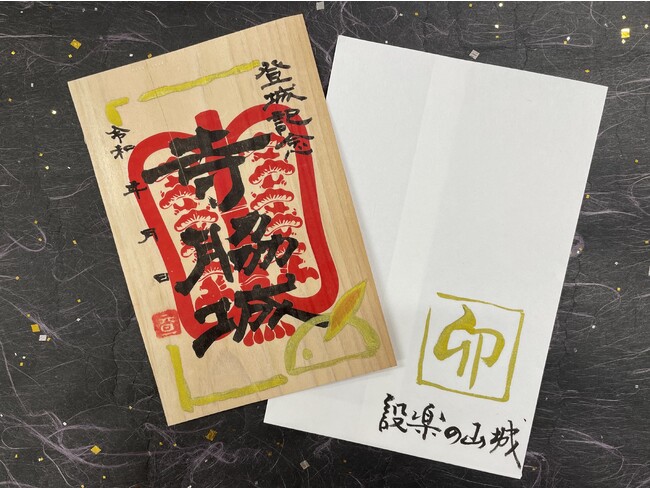 登城記念
寺脇城
令和 年 月 日
卯
設楽の山城